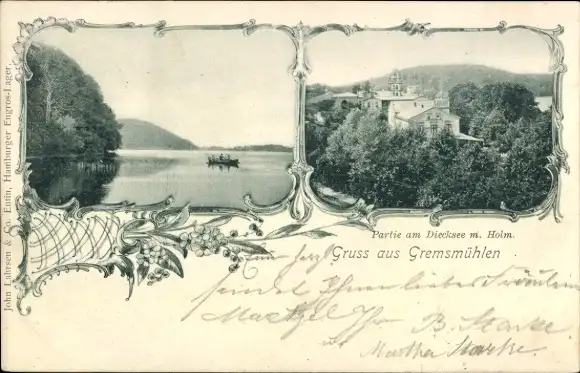 John Lahrsen & Co. Eutin, Hamburger Engros-Lager.
Partie am Diecksee m. Holm.
Gruss aus Gremsmühlen
sendet Ihnen liebes Fräulein
B. Starke
Martha Starke.